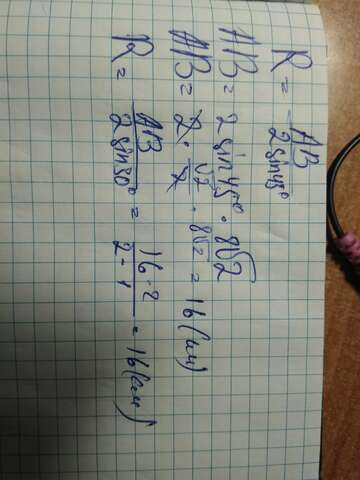 R = AB / 2 sin 45°
AB = 2 sin 45° · 8√2
AB = 2 · √2 / 2 · 8√2 = 16 (см)
R = AB / 2 sin 30° = 16 · 2 / 2 · 1 = 16 (см)